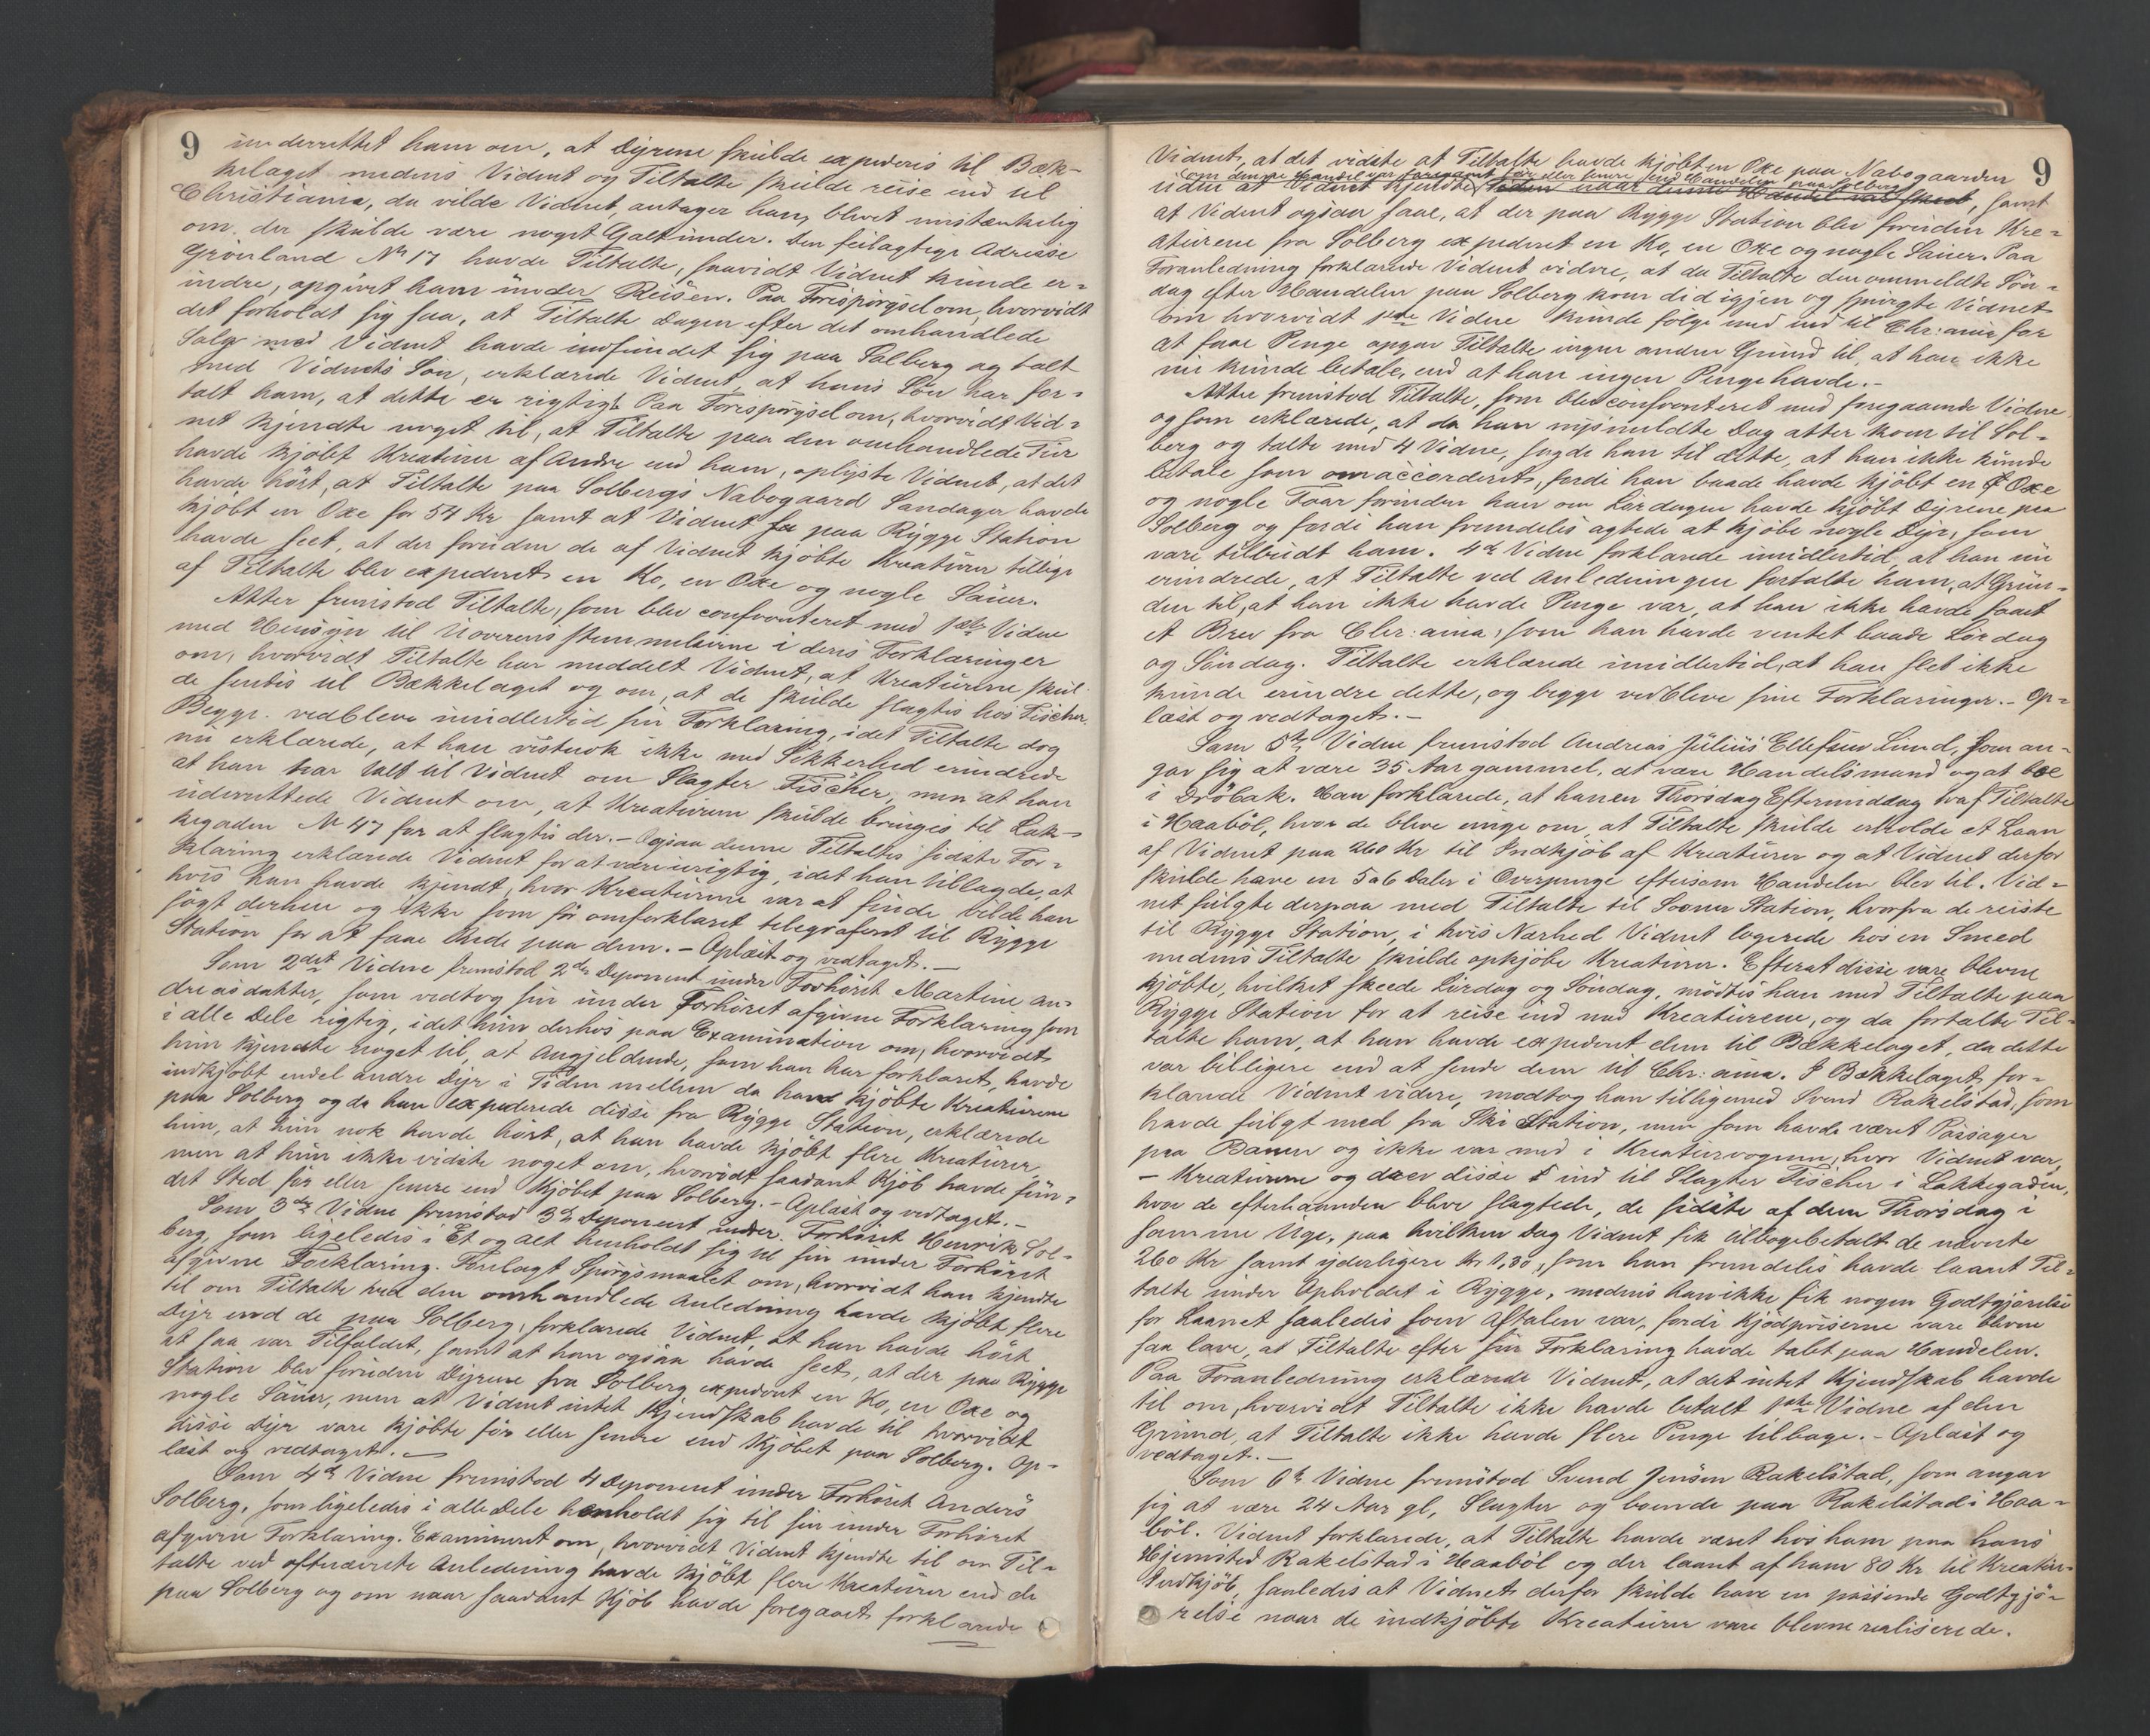 9
underrettet ham om, at Dyrene skulde expederes til Bæk-
kelaget medens Vidnet og Tiltalte skulde reise ind til
Christiania, da vilde Vidnet, antager han, blevet mistænkelig
om, der skulde være noget Galt under. Den feilagtige Adresse
Grønland No 17 havde Tiltalte, saavidt Vidnet kunde er-
indre, opgivet ham under Reisen. Paa Forespørgsel om, hvorvidt
det forholdt sig saa, at Tiltalte Dagen efter det omhandlede
Salg med Vidnet havde indfundet sig paa Solberg og talt
med Vidnets Søn, erklærede Vidnet, at hans Søn har for-
talt ham, at dette er rigtigt. Paa Forespørgsel om, hvorvidt Vid-
net kjendte noget til, at Tiltalte paa den omhandlede Tur
havde kjøbt Kreaturer af Andre end ham, oplyste Vidnet, at det
havde hørt, at Tiltalte paa Solbergs Nabogaard Sandager havde
kjøbt en Oxe for 54 Kr samt at Vidnet paa Rygge Station
havde seet, at der foruden de af Vidnet kjøbte Kreaturer tillige
af Tiltalte blev expederet en Ko, en Oxe og nogle Sauer.
Atter fremstod Tiltalte, som blev confronteret med 1ste Vidne
med Hensyn til Uoverensstemmelserne i deres Forklaringer
om, hvorvidt Tiltalte har meddelt Vidnet, at Kreaturene skul-
de sendes til Bækkelaget og om, at de skulde slagtes hos Fischer.
Begge vedbleve imidlertid sin Forklaring, idet Tiltalte dog
nu erklærede, at han vistnok ikke med Sikkerhed erindrede
at han har talt til Vidnet om Slagter Fischer, men at han
underrettede Vidnet om, at Kreaturene skulde bringes til Lak-
kegaden No 47 for at slagtes der. - Ogsaa denne Tiltaltes sidste For-
klaring erklærede Vidnet for at være urigtig, idet han tillagde, at
hvis han havde kjendt, hvor Kreaturene var at finde vilde han
søgt derhen og ikke som før omforklaret telegraferet til Rygge
Station for at faae Rede paa dem. - Oplæst og vedtaget. -
Som 2det Vidne fremstod 2den Deponent under Forhøret Martine An-
dreasdatter, som vedtog sin under Forhøret afgivne Forklaring som
i alle Dele rigtig, idet hun derhos paa Examination om, hvorvidt
hun kjendte noget til, at Angjeldende, som han har forklaret, havde
indkjøbt endel andre Dyr i Tiden mellem da han kjøbte Kreaturene
paa Solberg og da han expederede disse fra Rygge Station, erklærede
hun, at hun nok havde hørt, at han havde kjøbt flere Kreaturer
men at hun ikke vidste noget om, hvorvidt saadant Kjøb havde fun-
det Sted før eller senere end Kjøbet paa Solberg. - Oplæst og vedtaget. -
Som 3die Vidne fremstod 3die Deponent under Forhøret Henrik Sol-
berg, som ligeledes i Et og Alt henholdt sig til sin under Forhøret
afgivne Forklaring. Forelagt Spørgsmaalet om, hvorvidt han kjendte
til om Tiltalte ved den omhandlede Anledning havde kjøbt flere
Dyr end de paa Solberg, forklarede Vidnet, at han havde hørt
at saa var Tilfældet, samt at han ogsaa havde seet, at der paa Rygge
Station blev foruden Dyrene fra Solberg expederet en Ko, en Oxe og
nogle Sauer, men at Vidnet intet Kjendskab havde til hvorvidt
disse Dyr vare kjøbte før eller senere end Kjøbet paa Solberg. Op-
læst og vedtaget. -
Som 4de Vidne fremstod 4 Deponent under Forhøret Anders
Solberg, som ligeledes i alle Dele henholdt sig til sin under Forhøret
afgivne Forklaring. Examineret om, hvorvidt Vidnet kjendte til om Til-
talte ved oftnævnte Anledning havde kjøbt flere Kreaturer end de
paa Solberg og om naar saadant Kjøb havde foregaaet forklarede
9
Vidnet, at det vidste at Tiltalte havde kjøbt en Oxe paa Nabogaarden
om denne Handel var foregaaet før eller senere end Handelen paa Solberg
uden at Vidnet kjendte Tiden naar denne Handel var skeed, samt
at Vidnet ogsaa saae, at der paa Rygge Station blev foruden Kre-
aturene fra Solberg expederet en Ko, en Oxe og nogle Sauer. Paa
Foranledning forklarede Vidnet videre, at da Tiltalte den ommeldte Søn-
dag efter Handelen paa Solberg kom did igjen og spurgte Vidnet
om hvorvidt 1ste Vidne kunde følge med ind til Chr:ania for
at faae Penge opgav Tiltalte ingen anden Grund til, at han ikke
nu kunde betale, end at han ingen Penge havde. -
Atter fremstod Tiltalte, som blev confronteret med foregaaende Vidne
og som erklærede, at da han nysmeldte Dag atter kom til Sol-
berg og talte med 4 Vidne, sagde han til dette, at han ikke kunde
betale som omaccorderet, fordi han baade havde kjøbt en Oxe
og nogle Faar forinden han om Lørdagen havde kjøbt Dyrene paa
Solberg og fordi han fremdeles agtede at kjøbe nogle Dyr, som
vare tilbudt ham. 4de Vidne forklarede imidlertid, at han nu
erindrede, at Tiltalte ved Anledningen fortalte ham, at Grun-
den til, at han ikke havde Penge var, at han ikke havde faaet
et Brev fra Chr:ania, som han havde ventet baade Lørdag
og Søndag. Tiltalte erklærede imidlertid, at han slet ikke
kunde erindre dette, og begge vedbleve sine Forklaringer. - Op-
læst og vedtaget. -
Som 5te Vidne fremstod Andreas Julius Ellefsen Lund, som an-
gav sig at være 35 Aar gammel, at være Handelsmand og at boe
i Drøbak. Han forklarede, at han en Thorsdag Eftermiddag traf Tiltalte
i Haabøl, hvor de bleve enige om, at Tiltalte skulde erholde et Laan
af Vidnet paa 260 Kr til Indkjøb af Kreaturer og at Vidnet derfor
skulde have en 5 a 6 Daler i Overpenge eftersom Handelen blev til. Vid-
net fulgte derpaa med Tiltalte til Sooner Station, hvorfra de reiste
til Rygge Station, i hvis Nærhed Vidnet logerede hos en Smed
medens Tiltalte skulde opkjøbe Kreaturer. Efterat disse vare blevne
kjøbte, hvilket skeede Lørdag og Søndag, mødtes han med Tiltalte paa
Rygge Station for at reise ind med Kreaturene, og da fortalte Til-
talte ham, at han havde expederet dem til Bækkelaget, da dette
var billigere end at sende dem til Chr:ania. I Bækkelaget, for-
klarede Vidnet videre, modtog han tilligemed Svend Rakelstad, som
havde fulgt med fra Ski Station, men som havde været Passager
paa Banen og ikke var med i Kreaturvognen, hvor Vidnet var,
- Kreaturene og drev disse ind til Slagter Fischer i Lakkegaden,
hvor de efterhaanden bleve slagtede, de sidste af dem Thorsdag i
samme Uge, paa hvilken Dag Vidnet fik tilbagebetalt de nævnte
260 Kr samt yderligere Kr 1,30, som han fremdeles havde laant Til-
talte under Opholdet i Rygge, medens han ikke fik nogen Godtgjørelse
for Laanet saaledes som Aftalen var, fordi Kjødpriserne vare blevne
saa lave, at Tiltalte efter sin Forklaring havde tabt paa Handelen.
Paa Foranledning erklærede Vidnet, at det intet Kjendskab havde
til om, hvorvidt Tiltalte ikke havde betalt 1ste Vidne af den
Grund, at Tiltalte ikke havde flere Penge tilbage. - Oplæst og
vedtaget. -
Som 6te Vidne fremstod Svend Jensen Rakelstad, som angav
sig at være 24 Aar gl, Slagter og boende paa Rakelstad i Haa-
bøl. Vidnet forklarede, at Tiltalte havde været hos ham paa hans
Hjemsted Rakelstad i Haabøl og der laant af ham 80 Kr til Kreatur-
Indkjøb, saaledes at Vidnet derfor skulde have en passende Godtgjø-
relse naar de indkjøbte Kreaturer vare blevne realiserede.